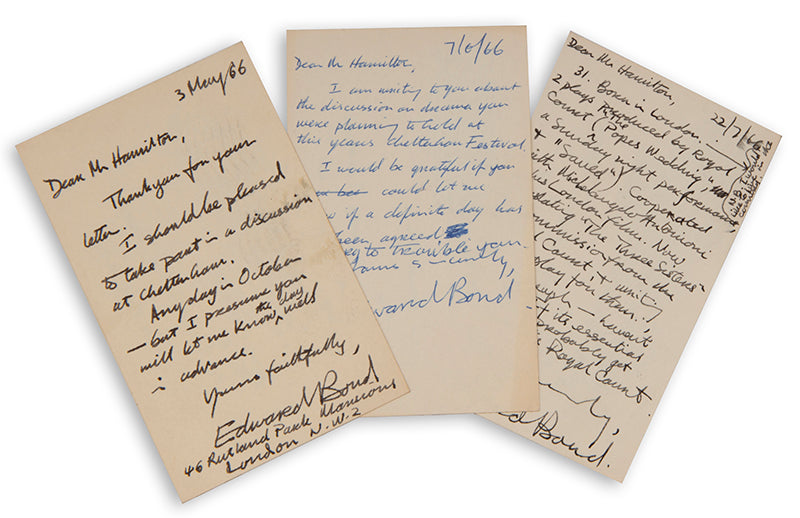 3 May 66
Dear Mr Hamilton,
Thank you for your
letter.
I should be pleased
to take part in a discussion
at Cheltenham.
Any day in October
— but I presume you
will let me know the day well
in advance.
Yours faithfully,
Edward Bond
46 Rutland Park Mansions
London N.W.2
7/6/66
Dear Mr Hamilton,
I am writing to you about
the discussion on drama you
were planning to hold at
this years Cheltenham Festival.
I would be grateful if you
could let me
if a definite day has
been agreed.
to trouble you.
Yours sincerely,
Edward Bond
22/7/66
Dear Mr Hamilton,
31. Born in London.
2 plays produced by Royal
Court (The Popes Wedding,
a Sunday night performance,
+ "Saved"). Cooperated
with Michelangelo Antonioni
London film. Now
"The Three Sisters"
commission from the
Court + writing
play for them.
haven't
its essential
probably get
Royal Court.
Bond.